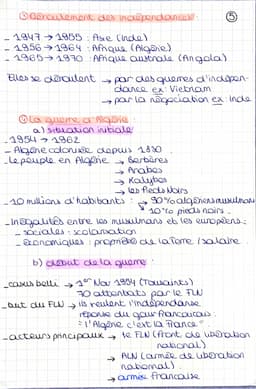 ① Déroulement des indépendances :
⑤
- 1947 → 1955 : Asie (Inde)
- 1956 → 1964 : Afrique (Algérie)
- 1965 → 1970 : Afrique australe (Angola)
Elles se déroulent → par des guerres d'indépen-
dance ex : Vietnam
→ par la négociation ex : Inde
② La guerre d'Algérie :
a) situation initiale
- 1954 → 1962
- Algérie colonisée depuis 1830
- Le peuple en Algérie → Berbères
→ Arabes
→ Kabyles
→ les Pieds Noirs
- 10 millions d'habitants : → 90% algériens musulmans
→ 10% pieds noirs
- Inégalités entre les musulmans et les européens :
- sociales : scolarisation
- économiques : propriété de la Terre / salaire
b) début de la guerre :
- casus belli → 1er Nov 1954 (Toussaints)
70 attentats par le FLN
- but du FLN → ils veulent l'indépendance
réponse du gouv Français :
: "l'Algérie c'est la France"
- acteurs principaux → le FLN (Front de libération
national)
→ ALN (armée de libération
national)
→ armée Française